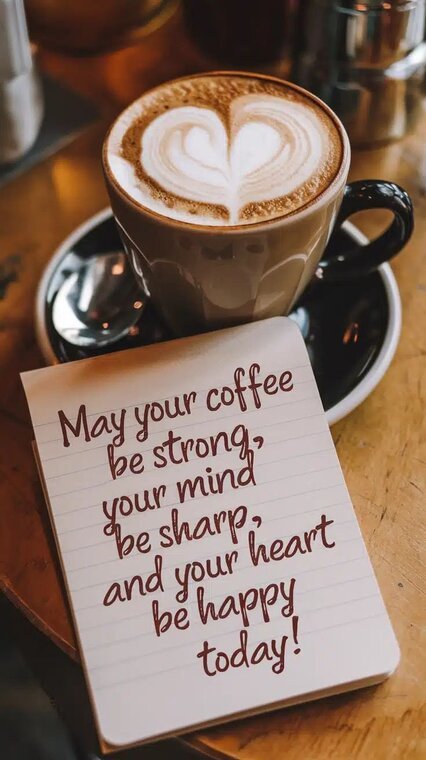 May your coffee
be strong,
your mind
be sharp,
and your heart
be happy
today!